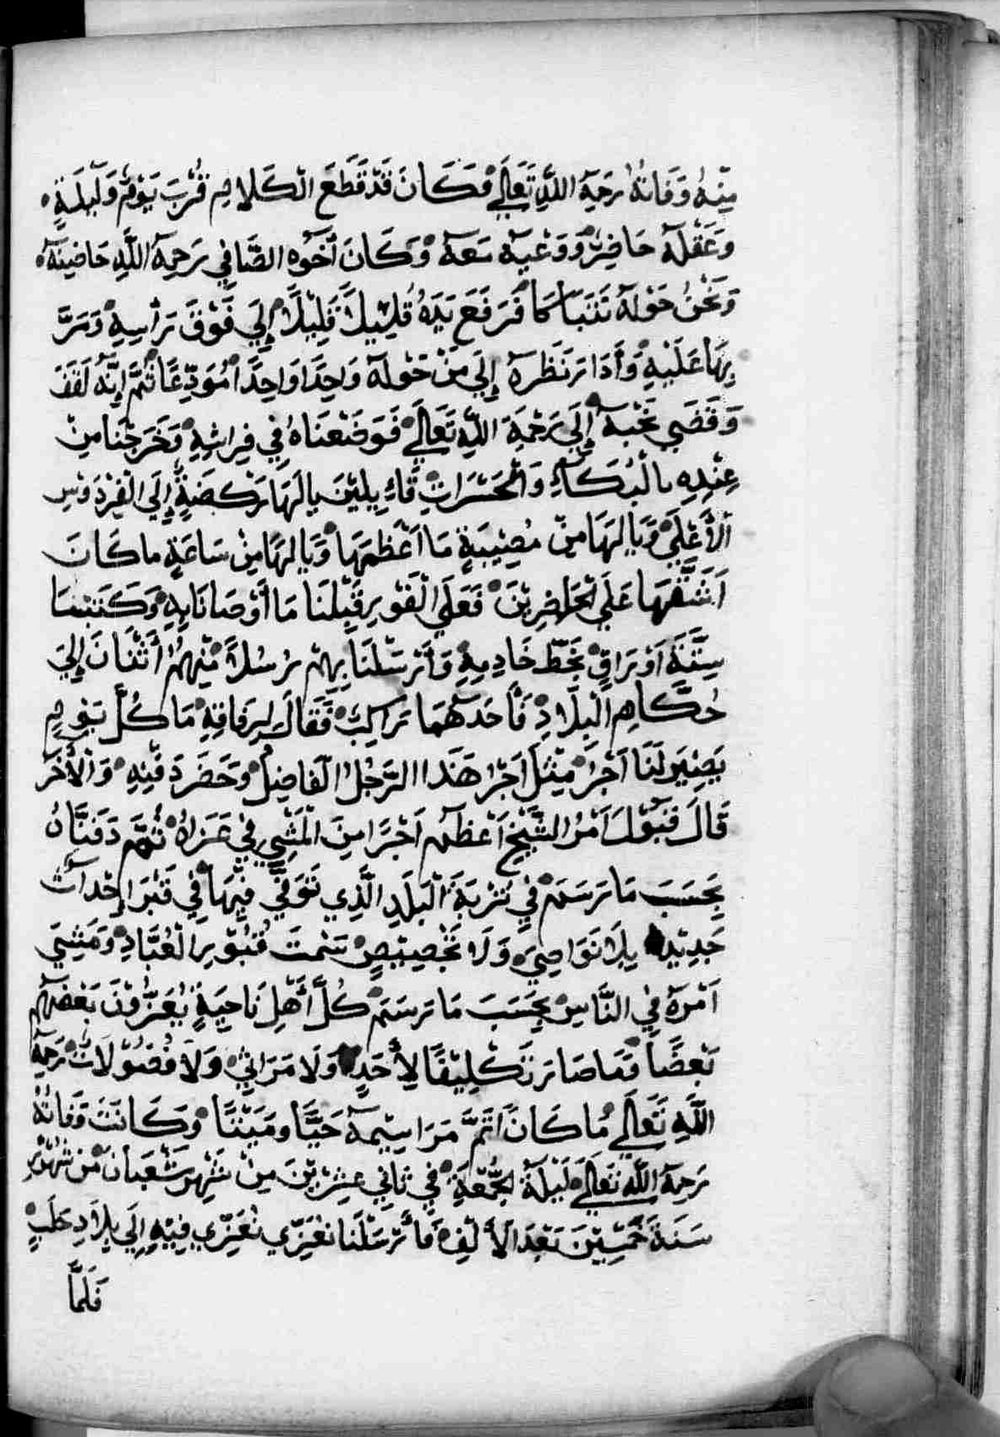 مِنْهُ وَفَاتهُ رَحِمَهُ اللَّهِ تَعَالَي فَكَانَ قَدْ قَطَعَ الْكَلَامِ قُرْبَ يَوْمٍ وَلَيْلَةٍ
وَعَقْلَهُ حَاضِرٌ وَوَعْيهُ مَعهُ وَكَانَ أَخُوه الصَّافِي رَحِمَهُ اللَّهِ حَاضِنهُ
وَنَحْنُ حَوْلهُ نَتَبَاكَا فَرَفَعَ يَدَهُ قَلِيلَاً قَلِيْلَاً إِلَي فَوْقَ رَأْسِهِ وَمَرَّ
بِهَا عَلَيْهِ وَأَدَارَ نَظَرهُ إِلَي مَنْ حَوْلهُ وَاحِدَاً وَاحِدَاً مُوَدِّعَاً ثُمَّ إِنَّهُ
وَقَضَي نَحْبهُ إِلَي رَحْمَةِ اللَّهِ تَعَالَي فَوَضَعْنَاهُ فِي فِرَاشِهِ وَخَرَجْنَا مِنْ
عِنْدِهِ بالْبُكَآءِ وَالْحَسَرَاتِ قَآئِلِيْنَ يالَهَا رَكْضَةٍ إِلَي الْفِرْدَوْسِ
الْأَعْلَي وَيَالَهَا مِنْ مُصِيْبَةٍ مَا اَعْظَمَهَا وَيَالهَا مِنْ سَاعَةٍ ما كَانَ
اَشَقَّهَا عَلَي الْحَاضِرِيْنَ فَعَلَي الْفَوْرِ قَبِلْنَا مَا أَوْصَانَا بِهِ وَكَتَبْنَا
سِتَّةَ اَوْرَاقٍ بخَطِّ خَادِمِهِ وَأَرْسَلْنَا بِهِمْ رُسُلَاً مِنْهُمْ أَثْنَانَ إِلَي
حُكَّامِ الْبِلَادِ فَأَحَدهُمَا رَاكِبٌ فَقَالَ لِرِفَاقِهِ مَا كُلَّ يَوْمٍ
يَصِيْرِ لَنَا اَجْرَ مِثْلَ اَجْرِ هَذَا الرَّجُلِ الْفَاضِلِ وَحَضَرَ دَفْنِهِ وَالْأَخَر
قَالَ قَبُوْلَ اَمْرُ الشَّيْخِ اَعْظَم اَجْرَاً مِنَ الْمَشْيِ فِي عَزَاهُ ثُمَّ دَفَنَّاهُ
بِحَسَبَ مَا رَسَمَ فِي تُرْبَةِ الْبَلَدِ الَّذِي تَوَفَّي فِيْهَا فِي قَبْرَ إِحْدَاث
جَدِيْد بِلَا نَوَاصِي وَلَا تَخْصِيْصٍ سَمتَ قُبُوْرِ الْعُبَّادِ وَمَشِيَ
اَمْرهُ فِي النَّاسِ بِحَسَبَ مَا رَسَمَ كُلّ أَهْلِ نَاحِيَةٍ يُعَزُّوْنَ بَعْضَهُم
بَعْضَاً فَمَا صَارَ تَكْلِيْفَاً لِأَحَدٍ وَلَا مَرَاثِي وَلَا فُضُوْلَاتٌ رَحِمَهُ
اللَّهِ تَعَالَي مَا كَانَ اَتَمَّ مَرَاسِيْمهُ حَيَّاً ومَيْتَاً وَكَانَتَ وَفَاتهُ
رَحِمَهُ اللَّهِ تَعَالَي لَيْلَةَ الْجُمْعَةِ فِي ثَانِي عِشْرِيْنَ مِنْ شَهْرِ شَعْبَانَ مِنْ شُهُوْرِ
سَنَةَ خَمْسِيْنَ بَعْدَ الْأَلْفِ فَأَرْسَلْنَا نُعَزِّي نُعَزِّي فِيْهِ إِلَي بِلَادِ حَلَبٍ
فَلَمَّا